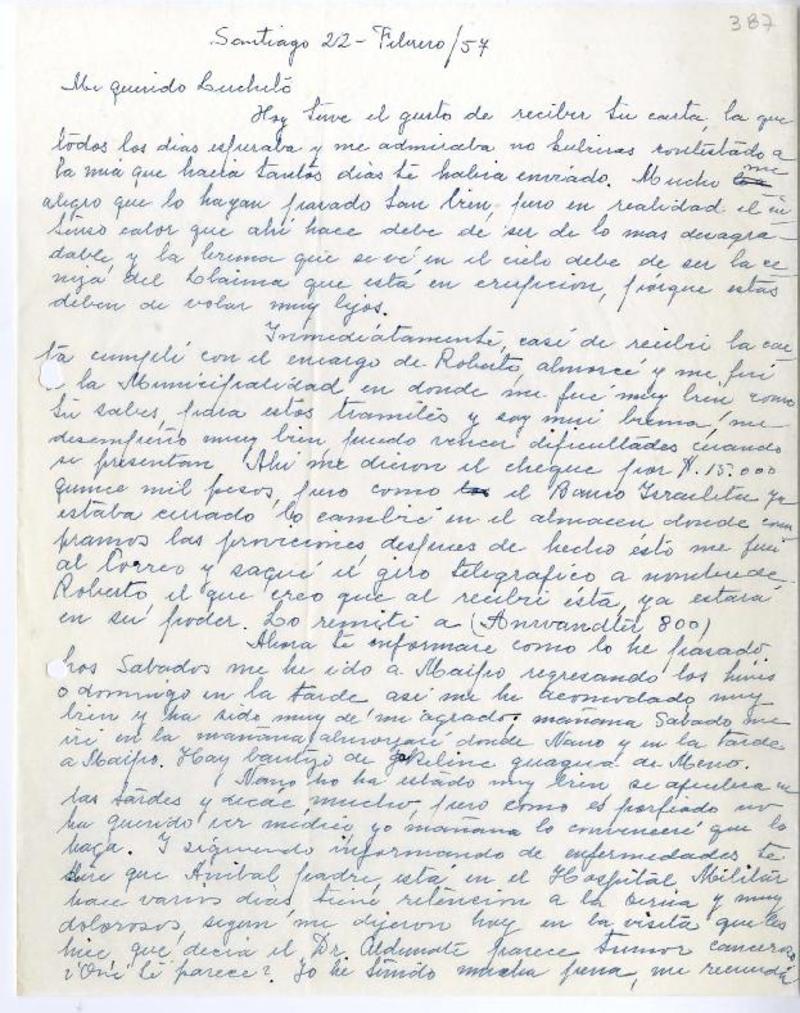 387
Santiago 22 - Febrero/57
Mi querido Luchito
Hoy tuve el gusto de recibir tu carta, la que
todos los dias esperaba y me admiraba no hubieras contestado a
la mia que hacia tantos dias te habia enviado. Mucho me
alegro que lo hayan pasado tan bien, pero en realidad el in-
tenso calor que ahi hace debe de ser de lo mas desagra-
dable, y la bruma que se vé en el cielo debe de ser la ce-
niza del Llaima que está en erupcion, porque estas
deben de volar muy lejos.
Inmediatamente, casi de recibi la car
ta cumpli con el encargo de Roberto, almorcé y me fui
a la Municipalidad en donde me fué muy bien como
tu sabes, para estos tramites y soy mui buena, me
desempeño muy bien, puedo vencer dificultades cuando
se presentan. Ahi me dieron el cheque por $. 15.000
quince mil pesos, pero como el Banco Israelita ya
estaba cerrado lo cambié en el almacen donde com
pramos las proviciones, despues de hecho ésto me fui
al Correo y saqué el giro telegrafico a nombre de
Roberto el que creo que al recibir ésta, ya estará
en su poder. Lo remiti a (Anwandter 800)
Ahora te informaré como lo he pasado.
Los Sabados me he ido a Maipo regresando los lunes
o domingo en la tarde asi me he acomodado muy
bien y ha sido muy de mi agrado; mañana Sabado me
iré en la mañana almorzaré donde Nano y en la tarde
a Maipo. Hay bautizo de guagua de Meno.
Nano no ha estado muy bien se afiebra en
las tardes y decae mucho, pero como es porfiado no
ha querido ver médico, yo mañana lo convenceré que lo
haga. I siguiendo informando de enfermedades te
diré que Anibal padre, está en el Hospital Militar
hace varios dias, tiene retencion a la orina y muy
dolorosos, segun me dijeron hoy en la visita que les
hice que decia el Dr. Aldunate parece tumor canceroso
¿Qué te parece? Yo he tenido mucha pena, me recuerda